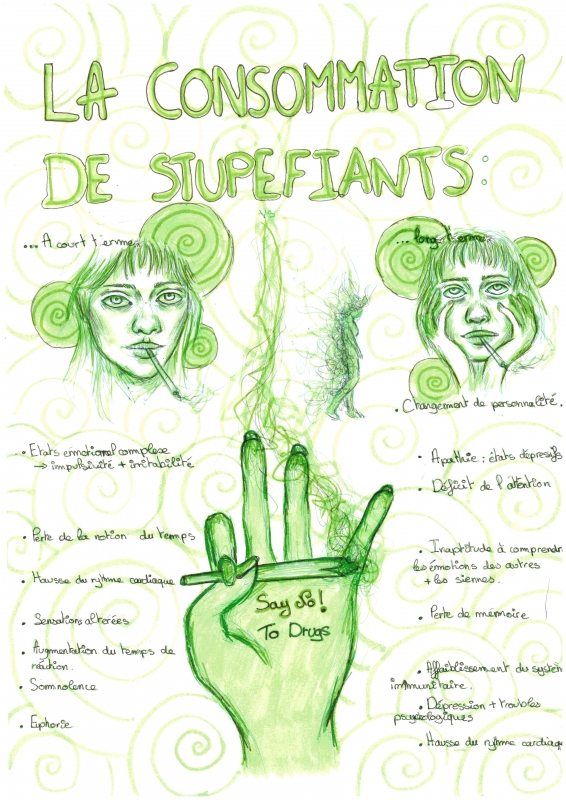 LA CONSOMMATION
DE STUPEFIANTS:
... A court terme
• Etats émotionel complexe
→ impulsivité + irritabilité
• Perte de la notion du temps
• Hausse du rythme cardiaque
• Sensations altérées
• Augmentation du temps de
réaction.
• Somnolence
• Euphorie
Say No!
To Drugs
... long terme
• Changement de personnalité.
• Apathie : états dépressifs
• Déficit de l'attention
• Inaptitude à comprendr
les émotions des autres
+ les siennes.
• Perte de mémoire
• Affaiblissement du systèm
immunitaire.
• Dépression + troubles
psycologiques
• Hausse du rythme cardiaqu